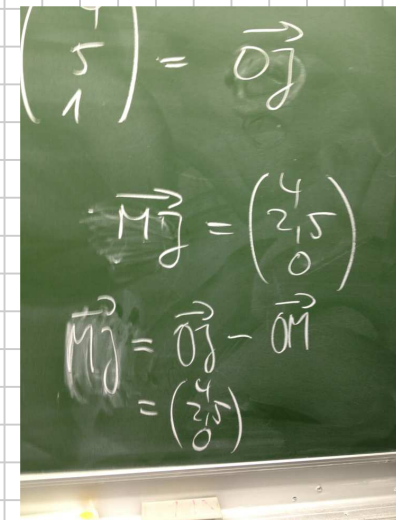 (4 5 1) = OJ⃗
MJ⃗ = (4 2,5 0)
MJ⃗ = OJ⃗ - OM⃗
= (4 2,5 0)